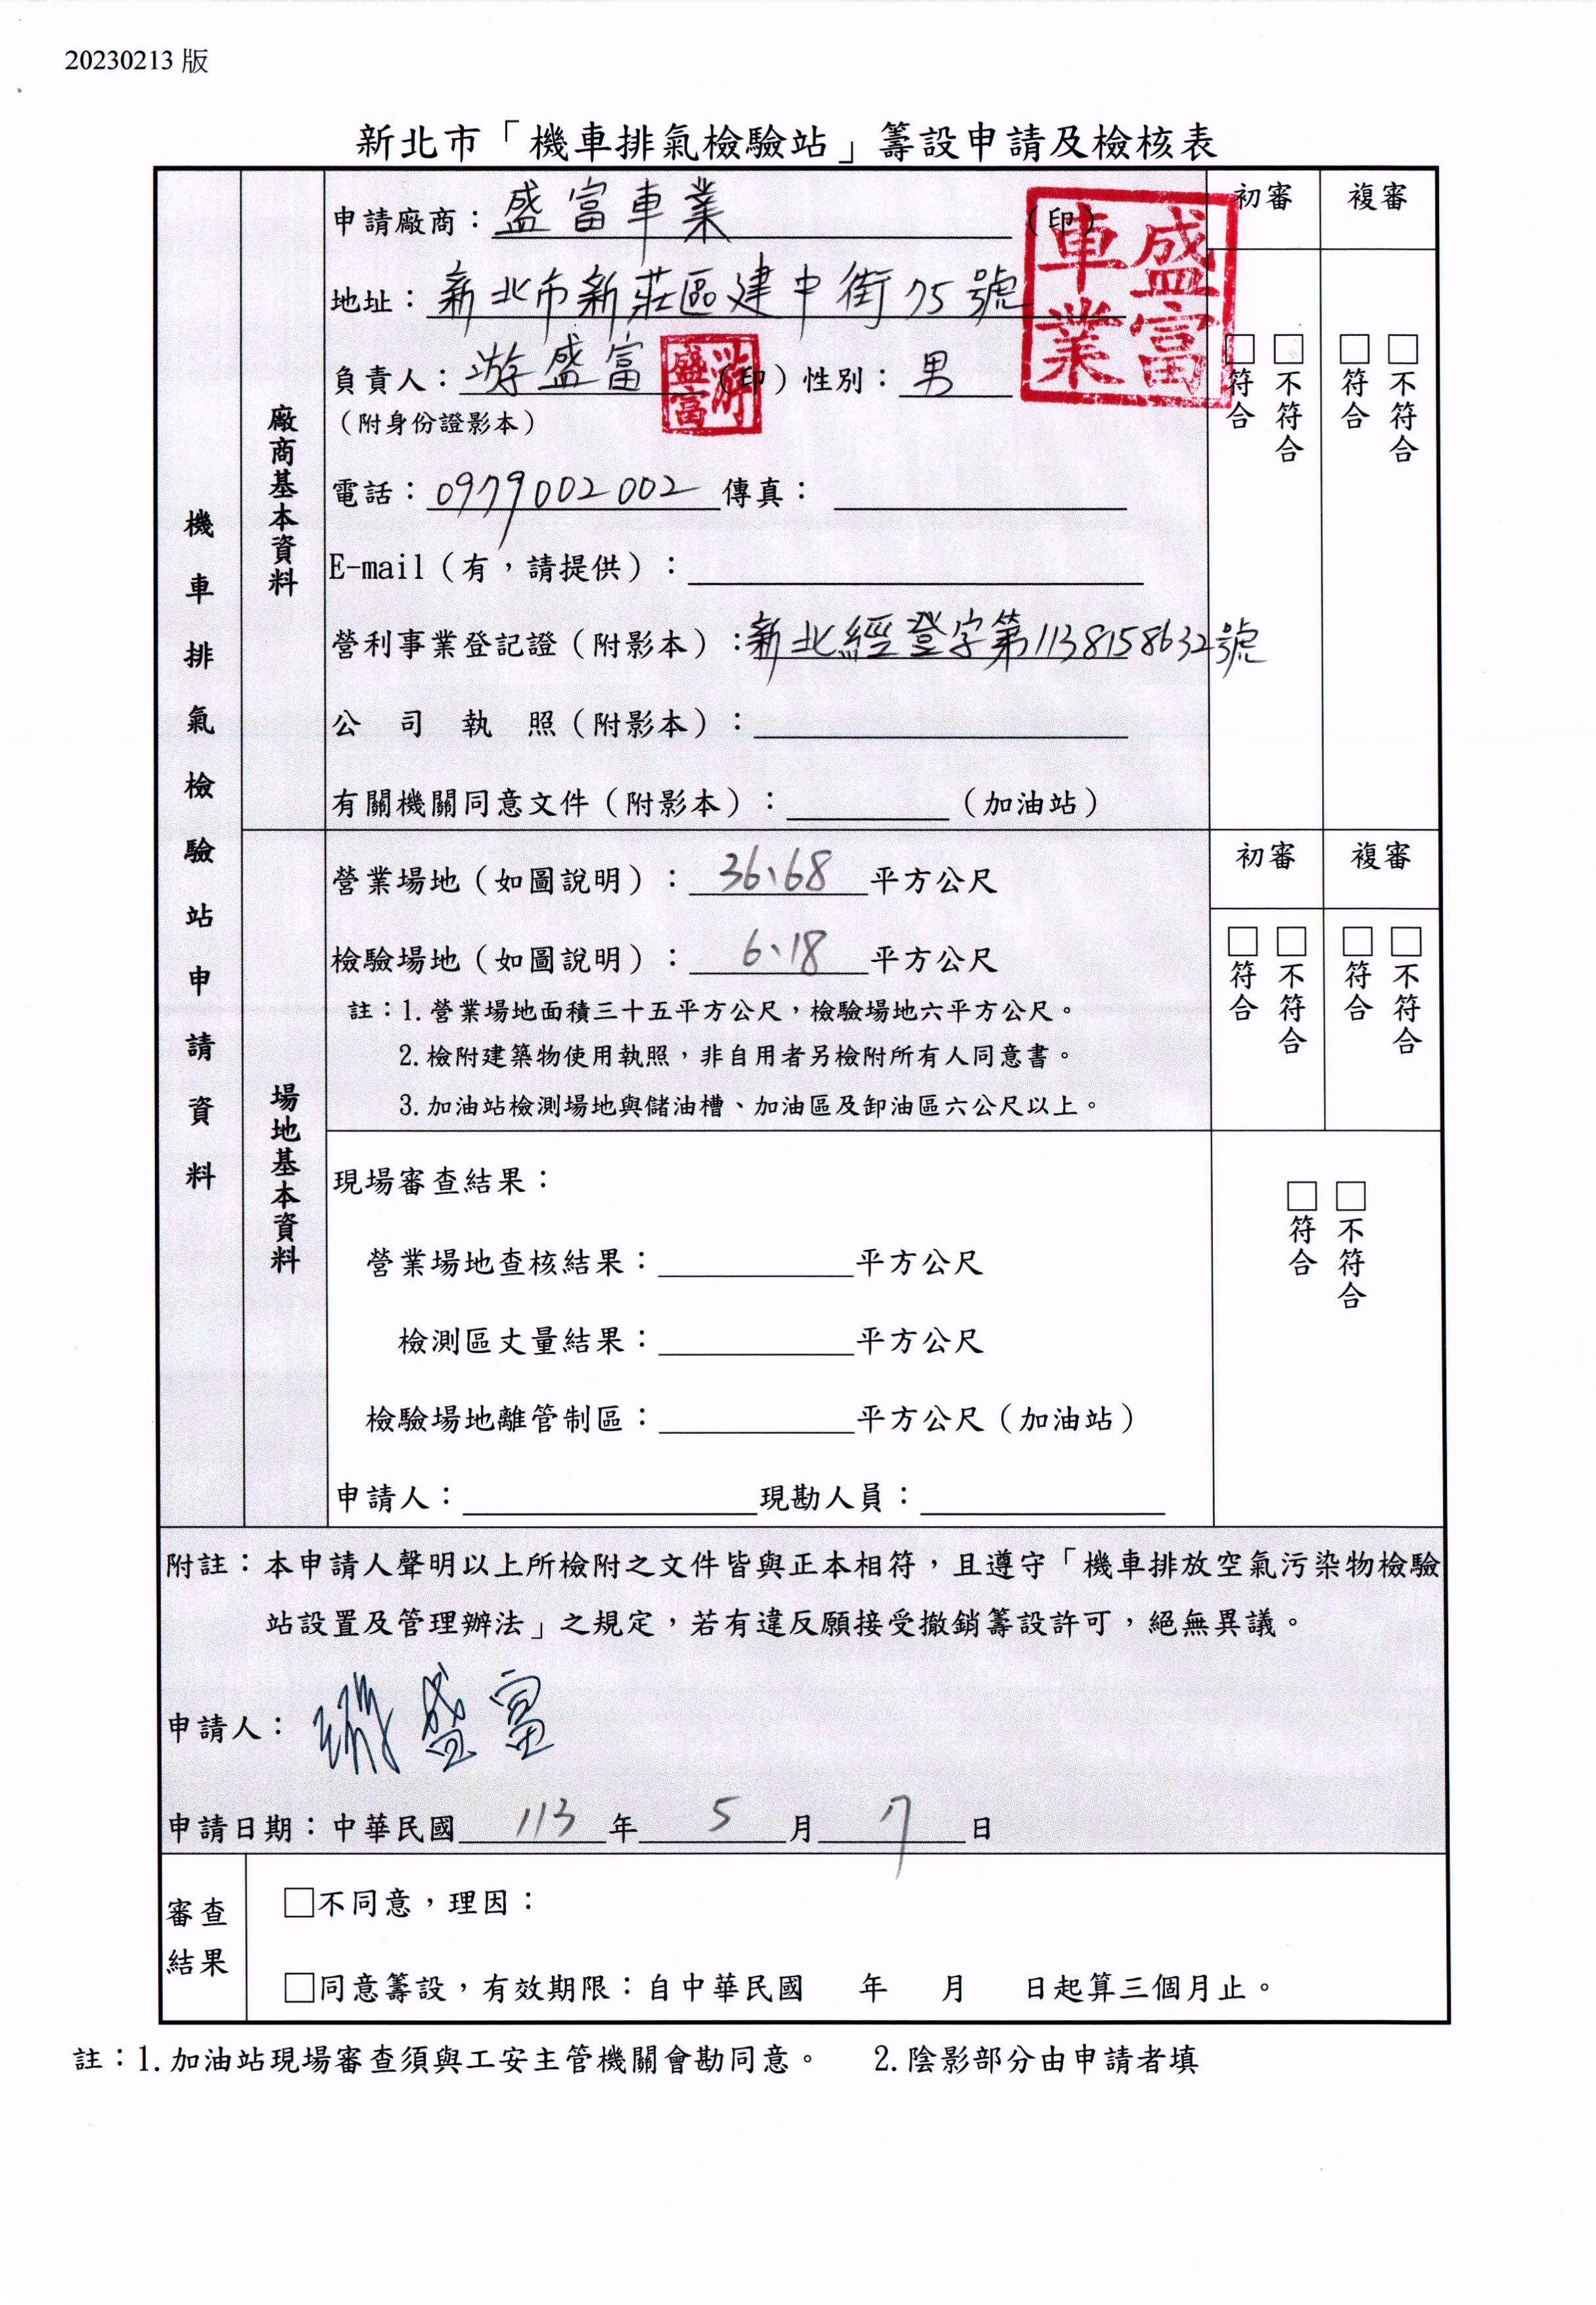 20230213 版
新北市「機車排氣檢驗站」籌設申請及檢核表
機車排氣檢驗站申請資料
廠商基本資料
申請廠商：盛富車業（印）
盛富車業
地址：新北市新莊區建中街75號
負責人：游盛富（印）性別：男
游盛富
（附身份證影本）
電話：0979002002 傳真：
E-mail（有，請提供）：
營利事業登記證（附影本）：新北經登字第1138158632號
公司執照（附影本）：
有關機關同意文件（附影本）：（加油站）
初審 複審
□符合 □不符合 □符合 □不符合
場地基本資料
營業場地（如圖說明）：36、68平方公尺
檢驗場地（如圖說明）：6、18平方公尺
註：1.營業場地面積三十五平方公尺，檢驗場地六平方公尺。
2.檢附建築物使用執照，非自用者另檢附所有人同意書。
3.加油站檢測場地與儲油槽、加油區及卸油區六公尺以上。
初審 複審
□符合 □不符合 □符合 □不符合
現場審查結果：
營業場地查核結果：平方公尺
檢測區丈量結果：平方公尺
檢驗場地離管制區：平方公尺（加油站）
申請人：現勘人員：
□符合 □不符合
附註：本申請人聲明以上所檢附之文件皆與正本相符，且遵守「機車排放空氣污染物檢驗
站設置及管理辦法」之規定，若有違反願接受撤銷籌設許可，絕無異議。
申請人：游盛富
申請日期：中華民國113年5月7日
審查結果
□不同意，理因：
□同意籌設，有效期限：自中華民國 年 月 日起算三個月止。
註：1.加油站現場審查須與工安主管機關會勘同意。 2.陰影部分由申請者填